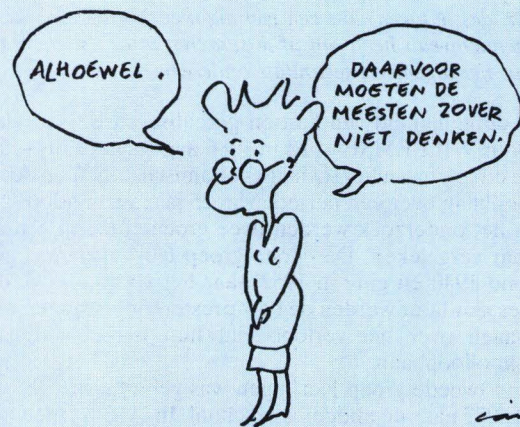 ALHOEWEL.
DAARVOOR
MOETEN DE
MEESTEN ZOVER
NIET DENKEN.